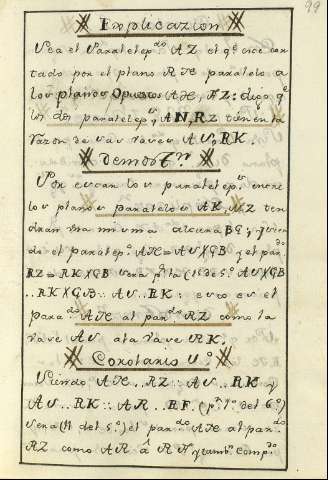 99
Explicazion
Sea el Paralelep.do AZ el q.e sice cor
tado por el plano RH paralelo a
los planos Opuestos AH, FZ: digo q.e
los dos paralelep.s AN, RZ tienen la
razon de sus vases AS, RK.
Demos.on
Por estar los paralelep.s entre
los planos paralelos AK, MZ ten
dran una misma altura BG; siendo
do el paralep.o AH = AS X GB y el par.do
RZ = RK X GB sera p.r la (15 del 5.o AS X GB
..RK X GB :: AS .. RK : esto es el
para.do AH al par.do RZ como la
vase AS ala vase RK.
Corolario 1.o
Siendo AH .. RZ :: AS .. RK y
AS .. RK :: AR .. RF. (p.r 1.a del 6.o)
sera (11 del 5.o) el par.do AH al par.do
RZ como AR á RF y tamb.n comp.do